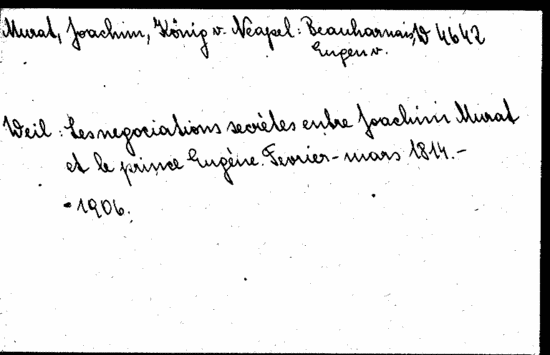 Murat, Joachim, König v. Neapel: Beauharnais, D 4642
Eugen v.
Weil: Les negociations secrètes entre Joachim Murat
et le prince Eugène. Fevrier-mars 1814.-
1906.